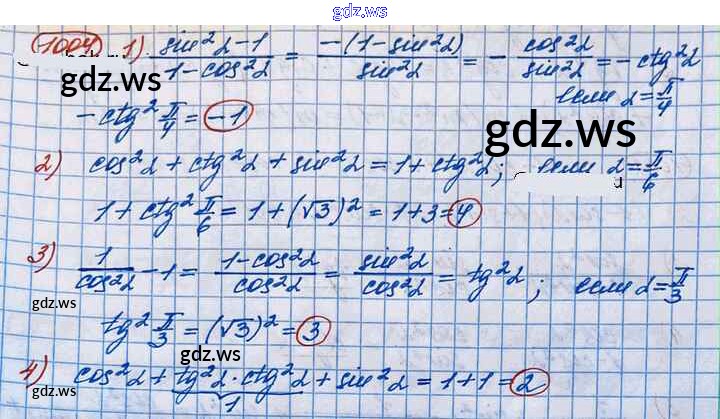 gdz.ws
1004 1) (sin²α-1)/(1-cos²α) = (-(1-sin²α))/(sin²α) = -(cos²α)/(sin²α) = -ctg²α
gdz.ws
если α=π/4
-ctg² π/4 = -1
gdz.ws
2) cos²α + ctg²α + sin²α = 1 + ctg²α; если α=π/6
1 + ctg² π/6 = 1 + (√3)² = 1+3=4
3) 1/(cos²α) - 1 = (1-cos²α)/(cos²α) = (sin²α)/(cos²α) = tg²α; если α=π/3
gdz.ws
gdz.ws
tg² π/3 = (√3)² = 3
4) cos²α + tg²α · ctg²α + sin²α = 1+1=2
1
gdz.ws
gdz.ws